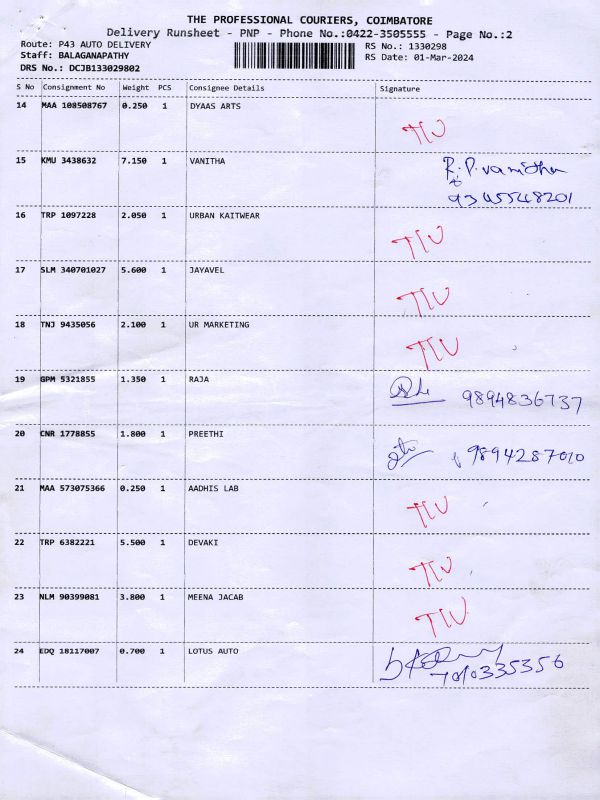 THE PROFESSIONAL COURIERS, COIMBATORE
Delivery Runsheet - PNP - Phone No.:0422-3505555 - Page No.:2
Route: P43 AUTO DELIVERY RS No.: 1330298
Staff: BALAGANAPATHY RS Date: 01-Mar-2024
DRS No.: DCJB133029802
S No Consignment No Weight PCS Consignee Details Signature
14 MAA 108508767 0.250 1 DYAAS ARTS
15 KMU 3438632 7.150 1 VANITHA R.P.vanitha
9345548201
16 TRP 1097228 2.050 1 URBAN KAITWEAR
17 SLM 340701027 5.600 1 JAYAVEL
18 TNJ 9435056 2.100 1 UR MARKETING
19 GPM 5321855 1.350 1 RAJA 9894836737
20 CNR 1778855 1.800 1 PREETHI 9894287010
21 MAA 573075366 0.250 1 AADHIS LAB
22 TRP 6382221 5.500 1 DEVAKI
23 NLM 90399081 3.800 1 MEENA JACAB
24 EDQ 18117007 0.700 1 LOTUS AUTO